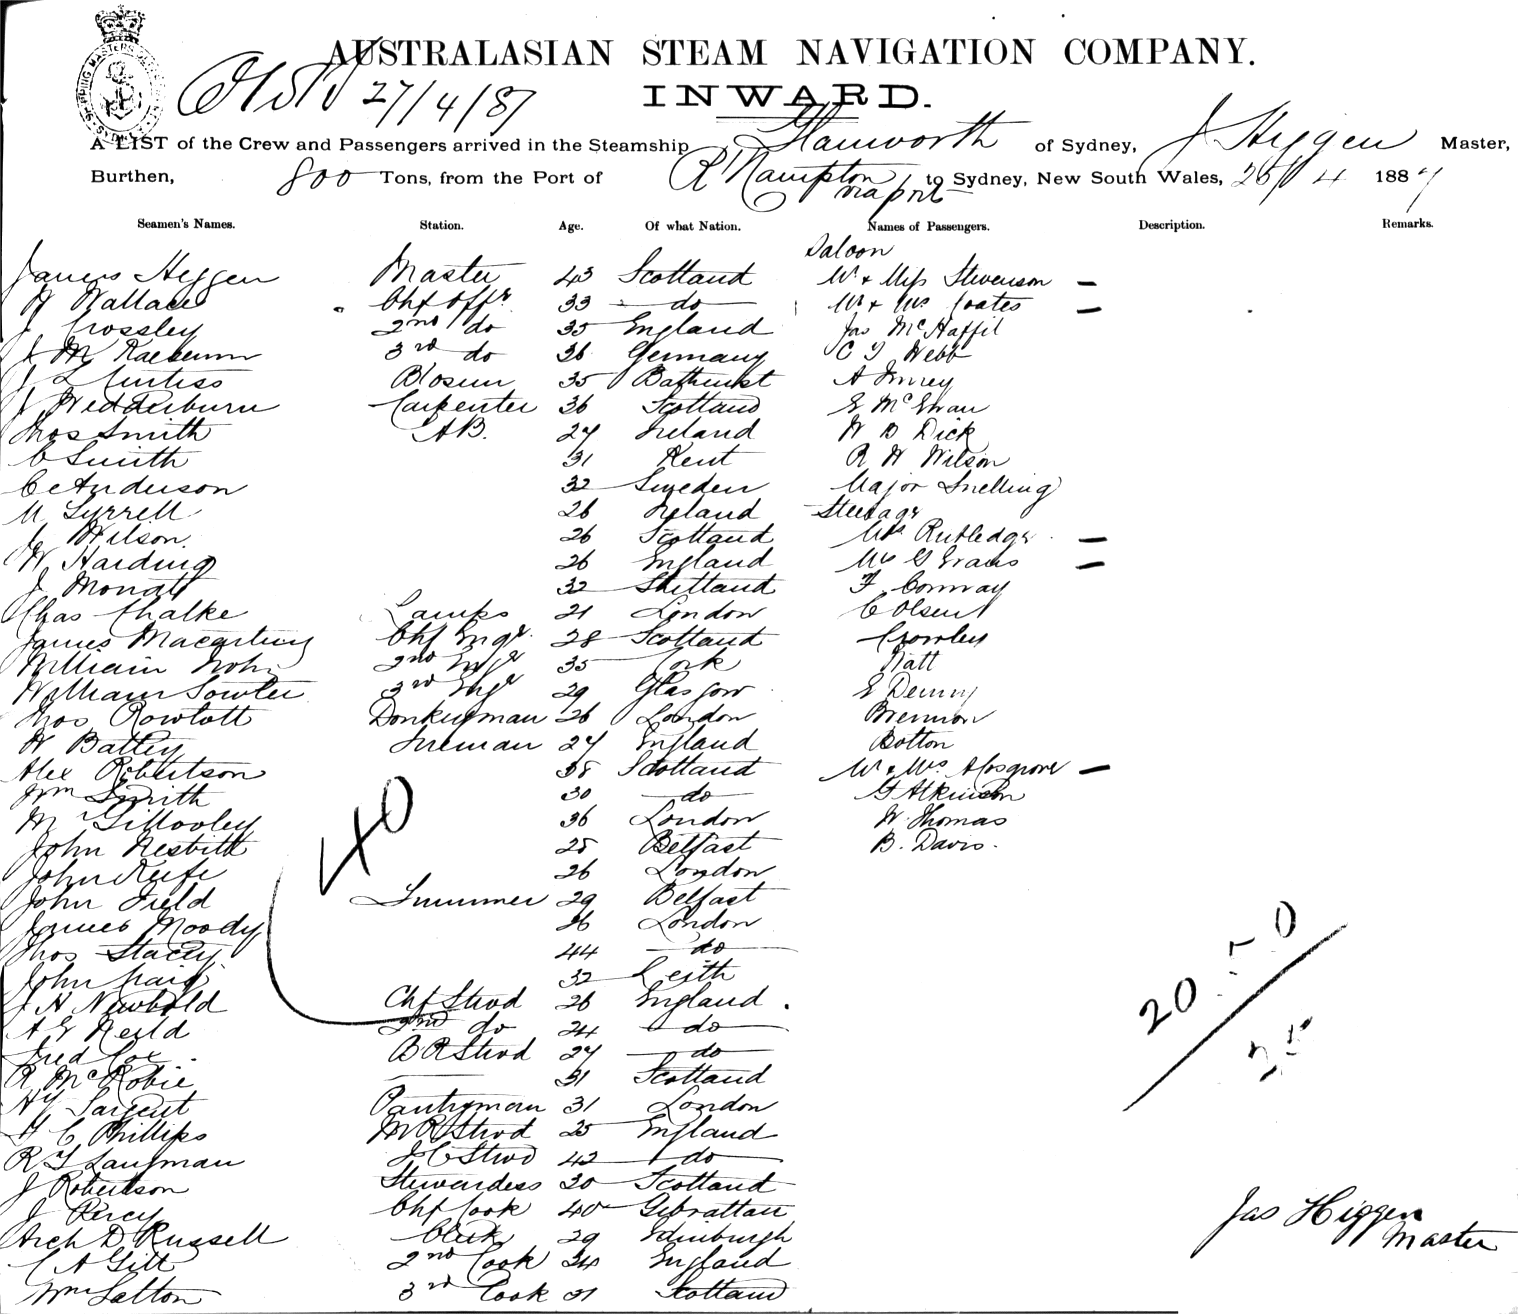 AUSTRALASIAN STEAM NAVIGATION COMPANY.
27/4/87
INWARD.
A LIST of the Crew and Passengers arrived in the Steamship of Sydney, J Higgen Master,
Burthen, 800 Tons, from the Port of R'Hampton via ports to Sydney, New South Wales, 26/4 1887
Seamen's Names. Station. Age. Of what Nation. Names of Passengers. Description. Remarks.
Saloon
James Higgen Master 43 Scotland Mr & Miss Stevenson —
W Wallace Chf Offr 33 do Mr & Mrs Coates —
J Crossley 2nd do 35 England Jas McHaffil
J M 3rd do 36 Germany C J Webb
J L Curtiss Bosun 35 Bathurst A
J Wedderburn Carpenter 36 Scotland E McEwan
Thos Smith A.B. 27 Ireland W B Dick
C Smith 31 Kent R W Wilson
C Anderson 32 Sweden Major Snelling
M Tyrrell 26 Ireland Steerage
Wilson 26 Scotland Mrs Rutledge —
W Harding 26 England Mrs G Evans —
J Mouat 32 Shetland F Conway
Chas Chalke Lamps 21 London C Olsen
James Macartney Chf Engr 28 Scotland Crowley
William 2nd Engr 35 Cork Natt
William Sowter 3rd Engr 29 Glasgow E Denny
Thos Rowlatt Donkeyman 26 London Brennon
W Battey Fireman 27 England Botton
Alex Robertson 38 Scotland Mr & Mrs Mosgrove —
Wm Smith 30 do G Atkinson
M Gillooley 36 London W Thomas
John Nesbitt 25 Belfast B. Davis.
John Keefe 26 London
40
John Field Trimmer 29 Belfast
James Moody 26 London
Thos Stacey 44 do
John Craig 32 Leith
J H Newbold Chf Stwd 26 England
A E Neild 2nd do 24 do
Fred Cox B R Stwd 27 do
R McRobie 31 Scotland
Hy Sargent Pantryman 31 London
H C Phillips M R Stwd 25 England
R J Langman F C Stwd 42 do
J Robertson Stewardess 30 Scotland
J Percy Chf Cook 40 Gibraltar
Arch D Russell Clerk 29 Edinburgh
C A Gill 2nd Cook 34 England
Wm Salton 3rd Cook 21 Scotland
Jas Higgen
Master